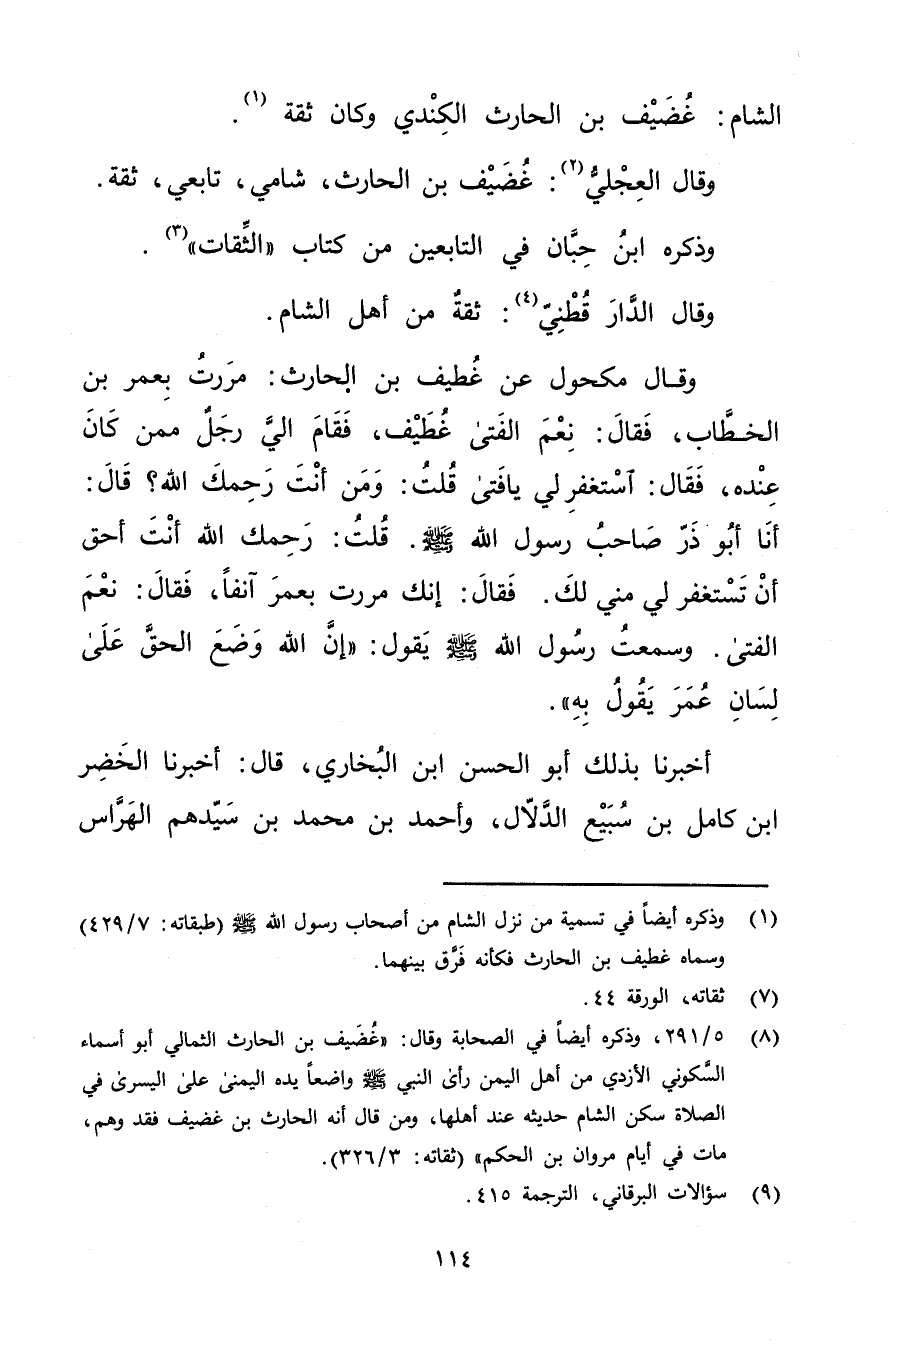 الشام: غُضَيْف بن الحارث الكِنْدي وكان ثقة (١).
وقال العِجْليُّ(٢): غُضَيْف بن الحارث، شامي، تابعي، ثقة.
وذكره ابنُ حِبَّان في التابعين من كتاب «الثِّقات»(٣).
وقال الدَّارَ قُطْنِيّ(٤): ثقةٌ من أهل الشام.
وقال مكحول عن غُطيف بن الحارث: مرَرتُ بِعمر بن
الخطَّاب، فَقالَ: نِعْمَ الفَتىٰ غُطَيْف، فَقَامَ اليَّ رجَلٌ ممن كَانَ
عِنْده، فَقَال: ٱسْتغفرِ لي يافَتىٰ قُلتُ: وَمَن أنْتَ رَحِمكَ الله؟ قَالَ:
أنَا أبُو ذَرّ صَاحبُ رسول الله ﷺ. قُلتُ: رَحِمك الله أنْتَ أحق
أنْ تَسْتغفر لي مني لكَ. فَقالَ: إنك مررت بعمرَ آنفاً، فَقالَ: نعْمَ
الفتىٰ. وسمعتُ رسُول الله ﷺ يَقول: «إنَّ الله وَضَعَ الحقَّ عَلَىٰ
لِسَانِ عُمَرَ يَقُولُ بِهِ».
أخبرنا بذلك أبو الحسن ابن البُخاري، قال: أخبرنا الخَضِر
ابن كامل بن سُبَيْع الدَّلّال، وأحمد بن محمد بن سَيّدهم الهَرَّاس
(١) وذكره أيضاً في تسمية من نزل الشام من أصحاب رسول الله ﷺ (طبقاته: ٤٢٩/٧)
وسماه غطيف بن الحارث فكأنه فَرَّق بينهما.
(٧) ثقاته، الورقة ٤٤.
(٨) ٢٩١/٥، وذكره أيضاً في الصحابة وقال: «غُضَيف بن الحارث الثمالي أبو أسماء
السَّكوني الأزدي من أهل اليمن رأىٰ النبي ﷺ واضعاً يده اليمنىٰ علىٰ اليسرىٰ في
الصلاة سكن الشام حديثه عند أهلها، ومن قال أنه الحارث بن غضيف فقد وهم،
مات في أيام مروان بن الحكم» (ثقاته: ٣٢٦/٣).
(٩) سؤالات البرقاني، الترجمة ٤١٥.
١١٤